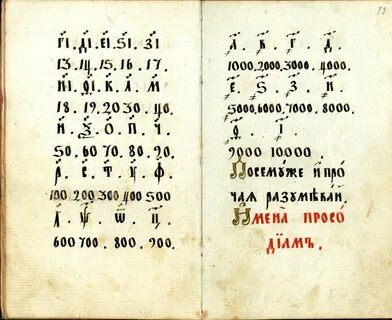 г҃і . д҃і . є҃і . ѕ҃і . з҃і
13. 14. 15. 16. 17.
и҃і . ѳ҃і . к҃ . л҃ . м҃
18. 19. 20 30. 40.
н҃ . ѯ҃ . о҃ . п҃ . ч҃
50. 60. 70. 80. 90.
р҃ . с҃ . т҃ . у҃ . ф҃
100 200 300 400 500
х҃ . ѱ҃ . ѿ . ц҃ .
600 700 . 800 . 900.
҂а . ҂в . ҂г . ҂д .
1000. 2000. 3000. 4000.
҂є . ҂ѕ . ҂з . ҂и .
5000, 6000, 7000 . 8000.
҂ѳ . ҂і .
9000 10000
Посемуже и про
чая разумѣваи.
Имена просо
дїамъ.